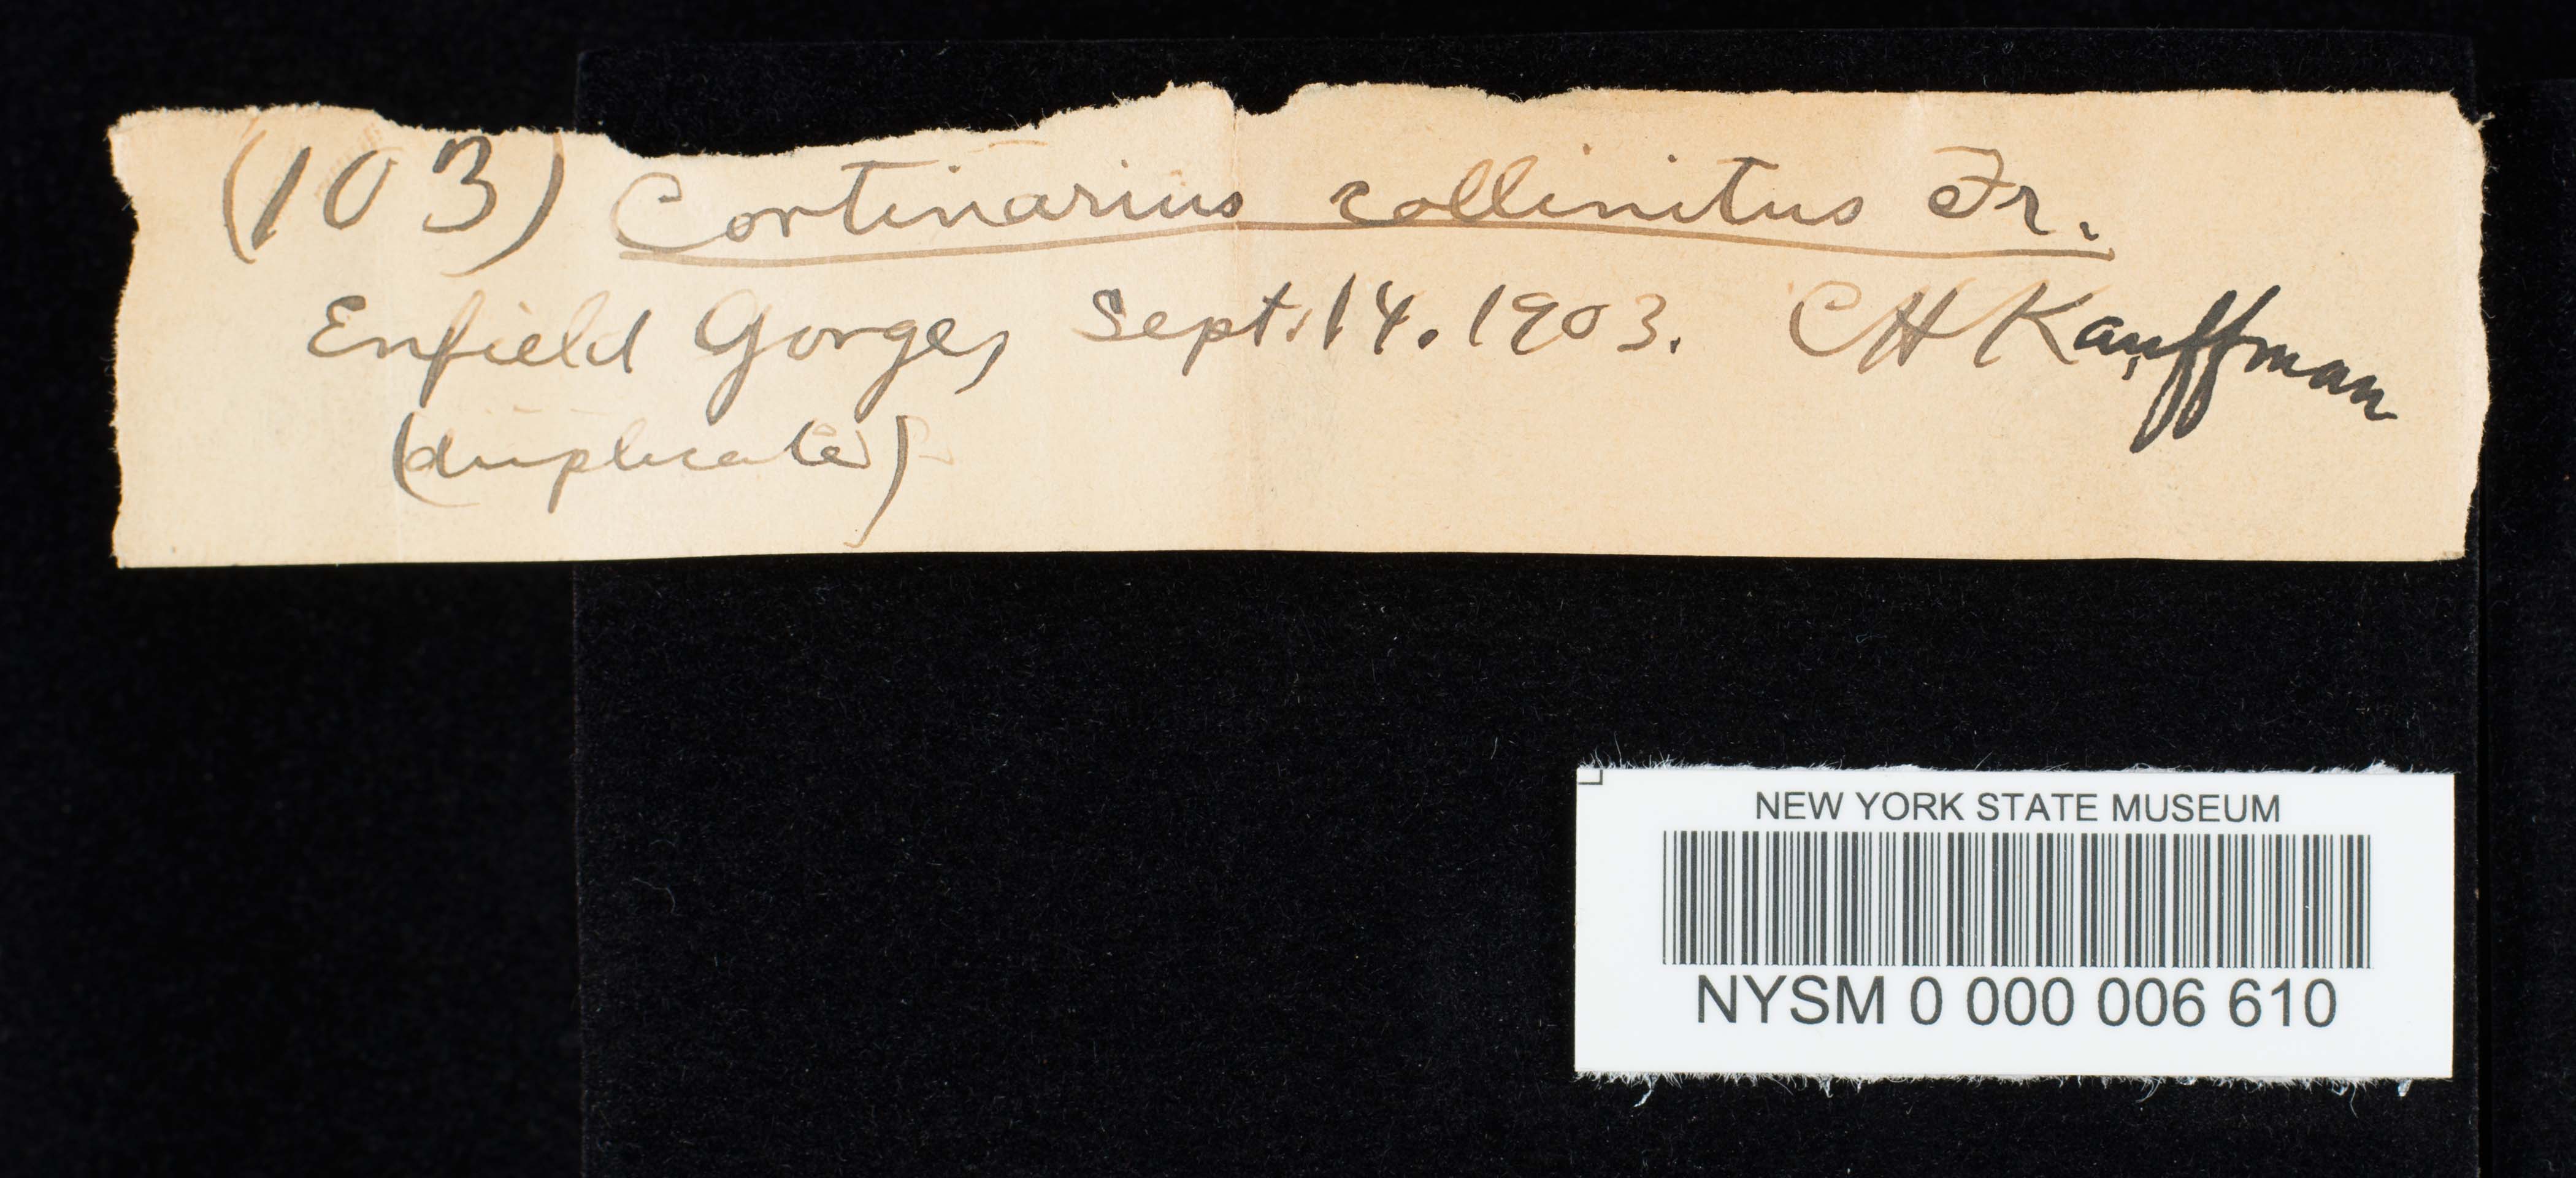 (103) Cortinarius collinitus Fr.
Enfield Gorge, Sept. 14. 1903. CH Kauffman
(duplicate)
NEW YORK STATE MUSEUM
NYSM 0 000 006 610